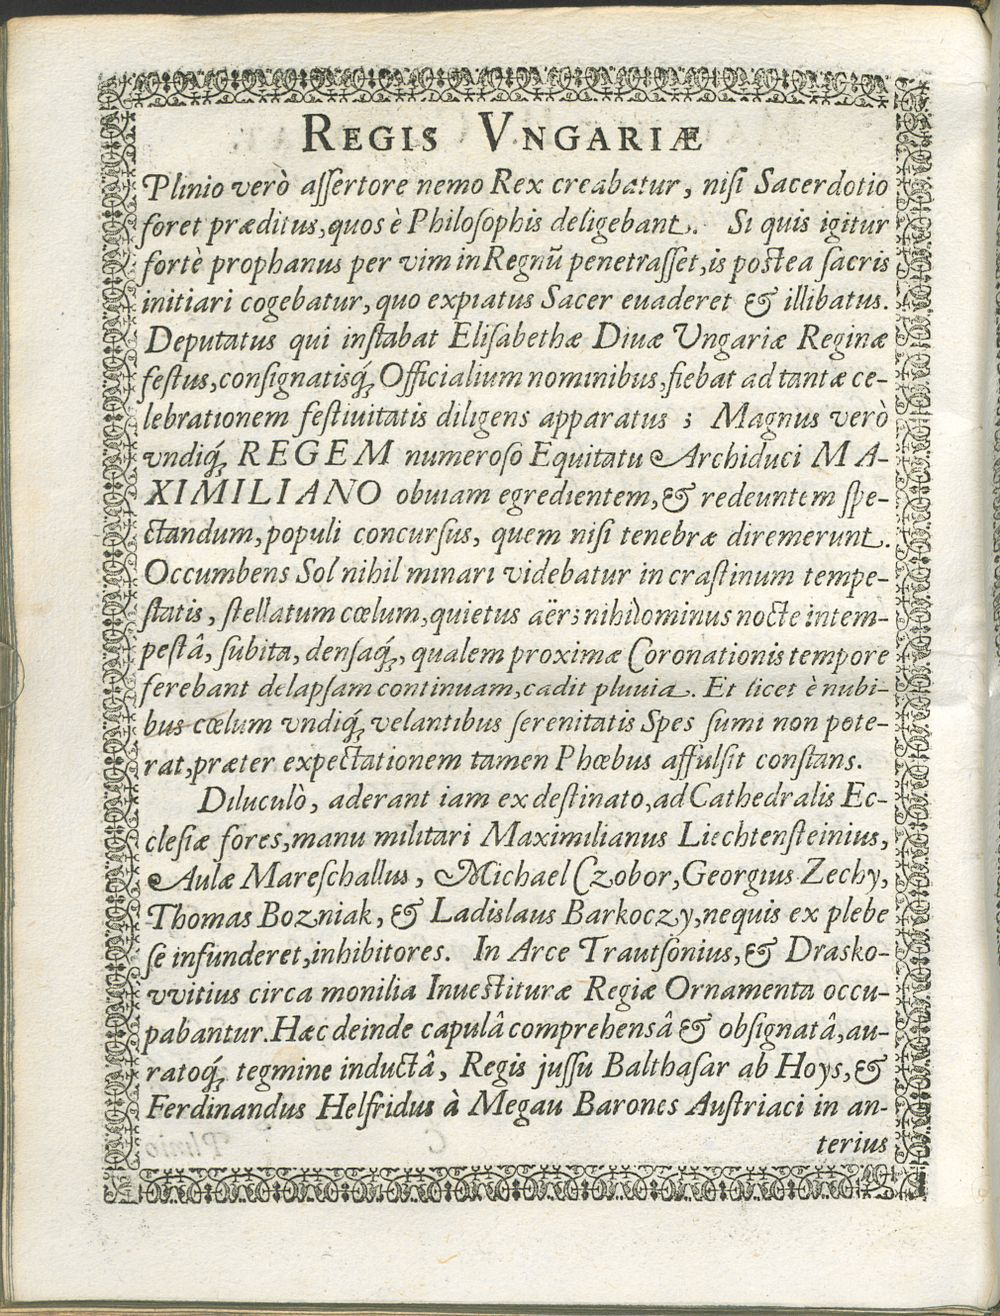 REGIS VNGARIÆ
Plinio verò assertore nemo Rex creabatur, nisi Sacerdotio
foret præditus, quos è Philosophis deligebant. Si quis igitur
fortè prophanus per vim in Regnũ penetrasset, is postea sacris
initiari cogebatur, quo expiatus Sacer euaderet & illibatus.
Deputatus qui instabat Elisabethæ Diuæ Vngariæ Reginæ
festus, consignatisq́; Officialium nominibus, fiebat ad tantæ ce-
lebrationem festiuitatis diligens apparatus ; Magnus verò
vndiq́; REGEM numeroso Equitatu Archiduci MA-
XIMILIANO obuiam egredientem, & redeuntem spe-
ctandum, populi concursus, quem nisi tenebræ diremerunt.
Occumbens Sol nihil minari videbatur in crastinum tempe-
statis, stellatum cœlum, quietus aër; nihilominus nocte intem-
pestâ, subita, densaq́;, qualem proximæ Coronationis tempore
ferebant delapsam continuam, cadit pluuia. Et licet è nubi-
bus cœlum vndiq́; velantibus serenitatis Spes sumi non pote-
rat, præter expectationem tamen Phœbus affulsit constans.
Diluculò, aderant iam ex destinato, ad Cathedralis Ec-
clesiæ fores, manu militari Maximilianus Liechtensteinius,
Aulæ Mareschallus, Michael Czobor, Georgius Zechy,
Thomas Bozniak, & Ladislaus Barkoczy, nequis ex plebe
se infunderet, inhibitores. In Arce Trautsonius, & Drasko-
vvitius circa monilia Inuestituræ Regiæ Ornamenta occu-
pabantur. Hæc deinde capulâ comprehensâ & obsignatâ, au-
ratoq́; tegmine inductâ, Regis jussu Balthasar ab Hoys, &
Ferdinandus Helfridus à Megau Barones Austriaci in an-
terius